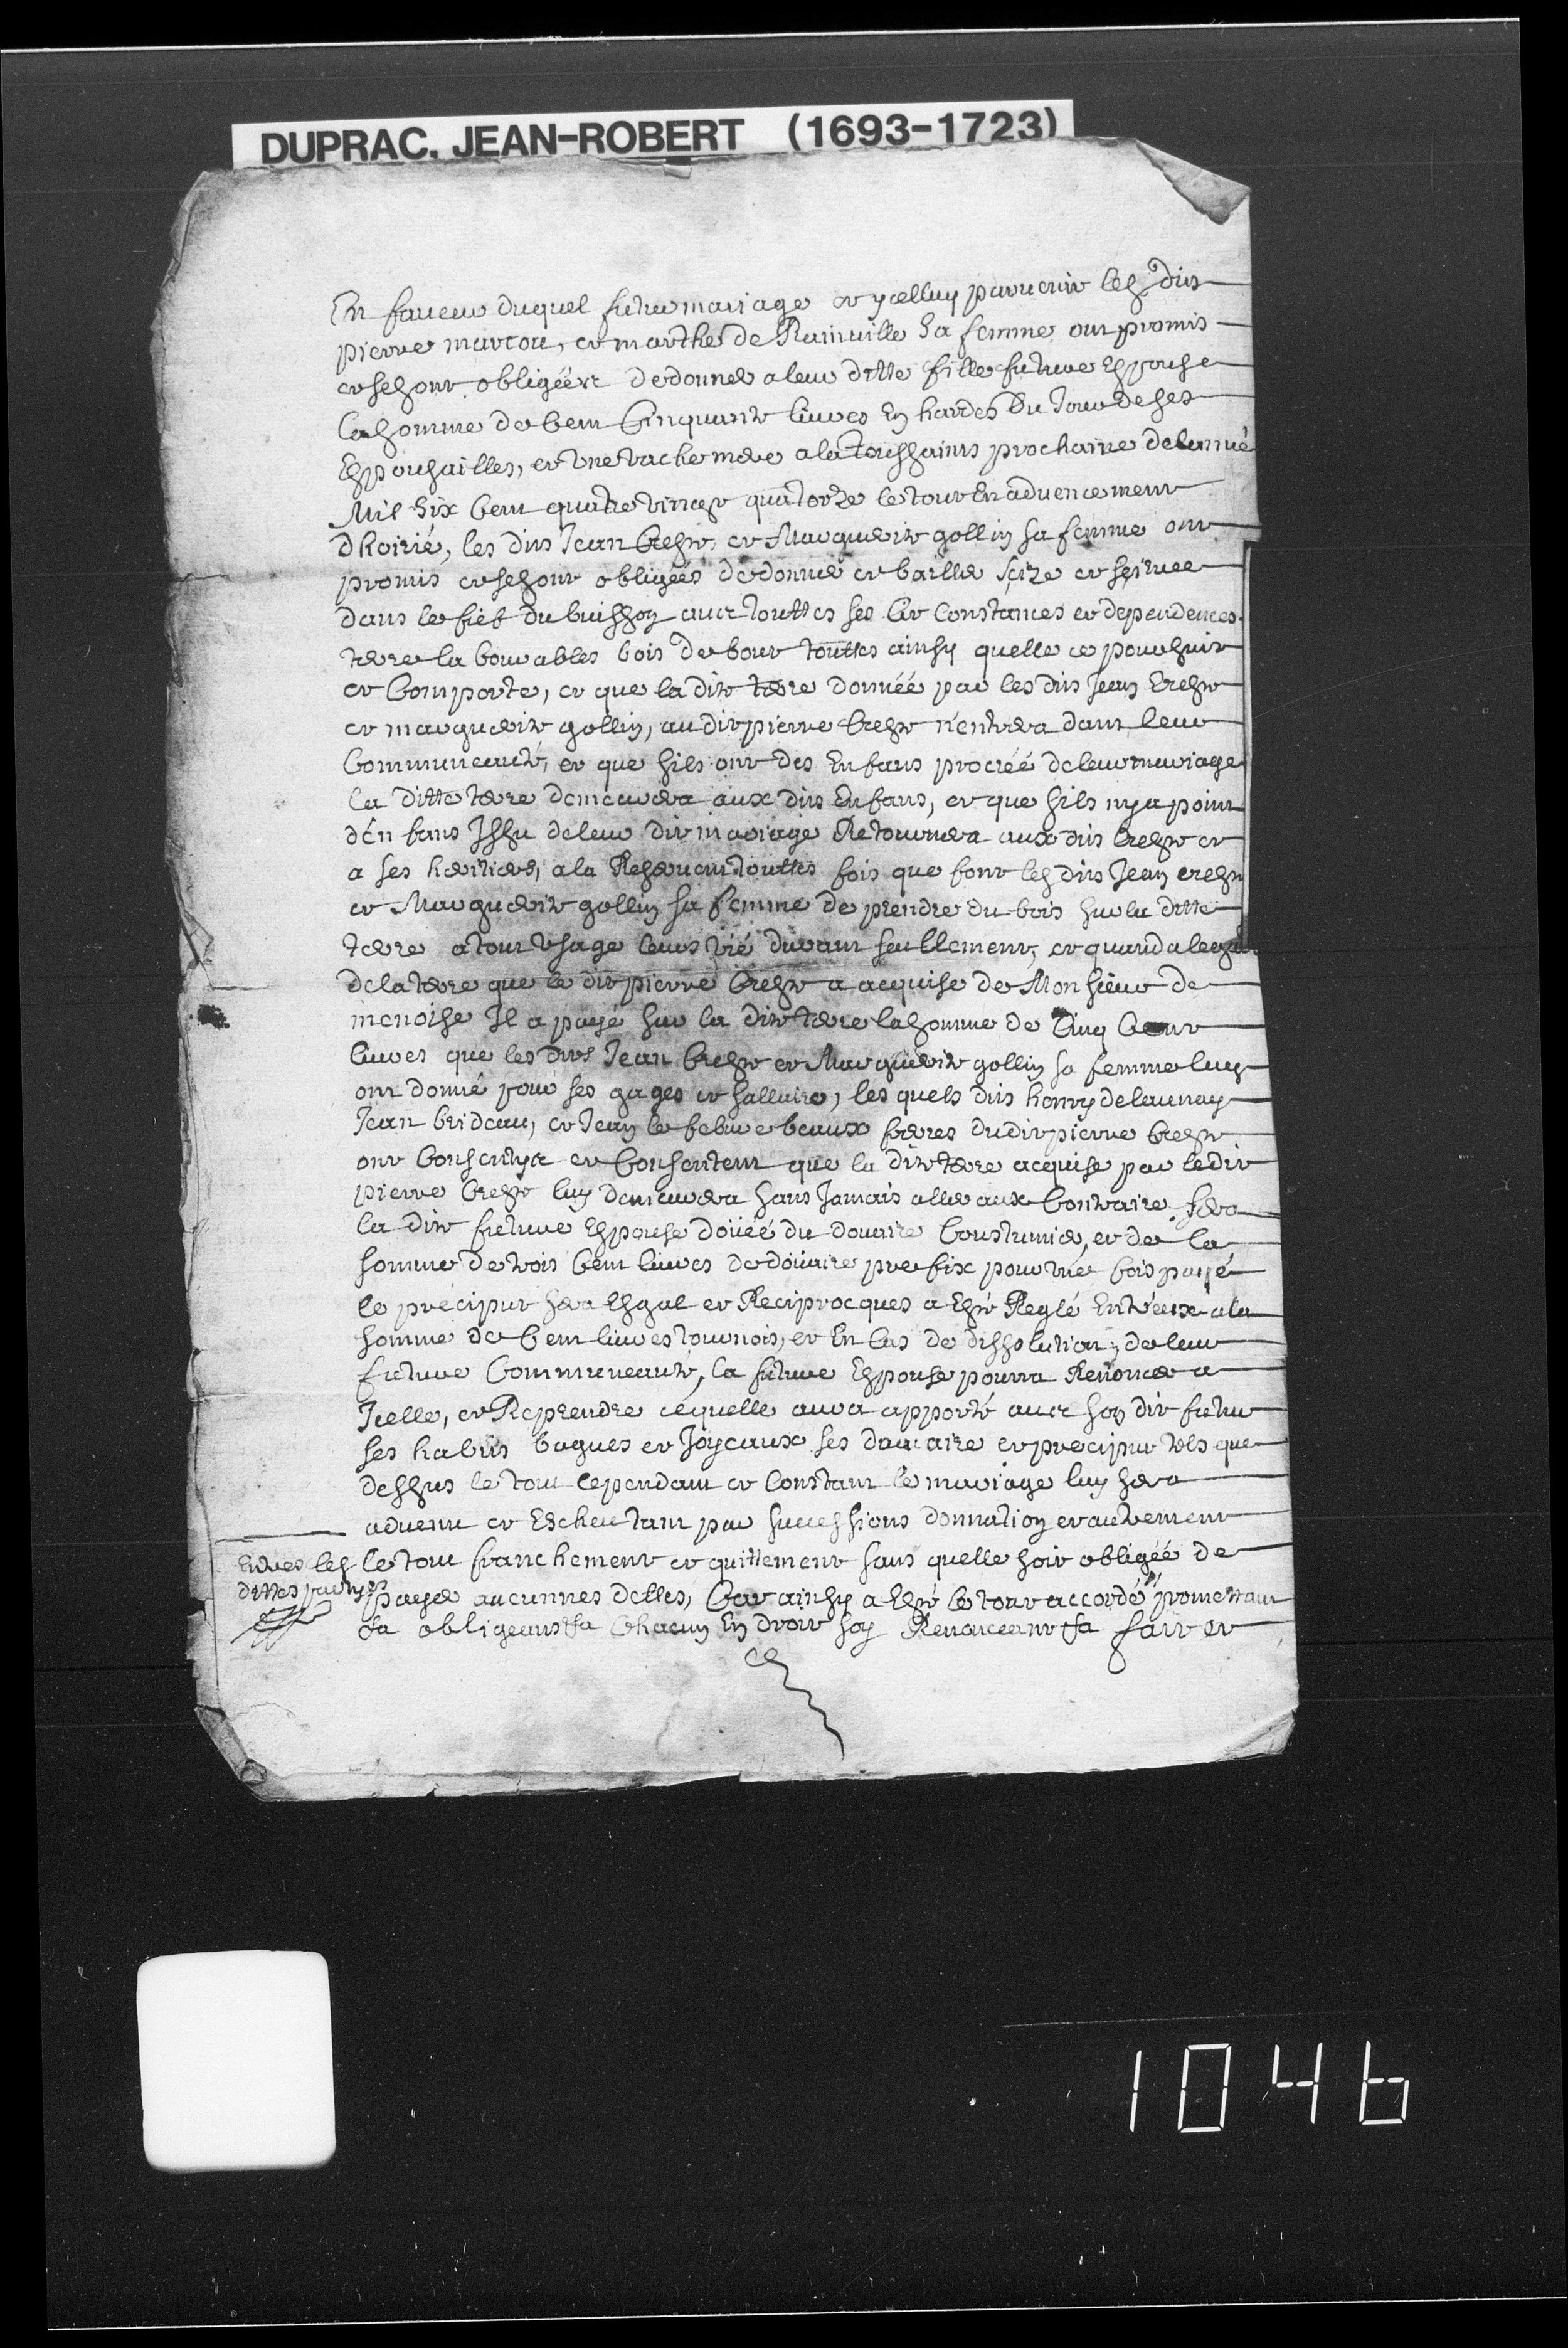 DUPRAC, JEAN-ROBERT (1693-1723)
En faveur duquel futur mariage et ycelluy parvenir les dits
pierre marcou, et marthe de Rainville sa femme ont promis
et se sont obligéez de donner a leur ditte fille future Espouse
la somme de Cent Cinquante livres En hardes Du Jour de ses
Espousailles, et vne vache mere a la toussaints prochaine de lanné
Mil Six Cent quatre vingt quatorze le tout En advencement
dhoirié, les dits Jean Creste, et Marguerite gollin sa femme ont
promis et se sont obligées de donner et bailler size et scituee
dans le fief du buisson avec touttes ses Cir Constances et dependences
terre la bourables bois de bout touttes ainsy quelle ce poursuit
et Comporte, et que la dite terre donnéé par les dits Jean Creste
et marguerite gollin, au dit pierre Creste n'entrera dans leur
Communeauté, et que sils ont des Enfans procréé de leur mariage
la ditte terre demeurera aux dits Enfans, et que sils ny a point
d'én fans Issu de leur dit mariage Retournera aux dits Creste et
a ses heritiers, a la Reserve touttes fois que font les dits Jean creste
et Marguerite gollin sa femme de prendre du bois sur la ditte
terre a tout vsage leurs vié durant seullement, et quand a lesgar
de la terre que le dit pierre Creste a acquise de Monsieur de
menoise Il a payé sur la dite terre la somme de Cinq Cent
livres que les dits Jean Creste et Marguerite gollin sa femme luy
ont donné pour ses gages et sallaire, les quels dits henry delaunay
Jean brideau, et Jean le febure beaux freres du dit pierre Creste
ont Consentyz et Consentent que la dite terre acquise par le dit
pierre Creste luy demeurera sans Jamais aller aux Contraire sera
la dite future Espouse doüéé du douaire Coustumier, et de la
somme de trois Cent livres de doüaire prefix pour vne fois payé
le precipur sera Esgal et Reciprocques a Esté Reglé Entr'eux a la
somme de Cent livres tournois, et En Cas de dissolution de leur
future Communeauté, la future Espouse pourra Renoncer a
Icelle, et Reprendre ce quelle aura apporté avec son dit futur
ses habits bagues et Joyeaux ses douaire et precipur tels que
dessus le tout cependant et Constant le mariage luy sera
advenu et Escheu tant par successions donnation et autrement
Entres les
dittes partyes
le tout franchement et quittement sans quelle soit obligéé de
payer aucunnes dettes, Car ainsy a Esté le tout accordé promettant
&a obligeant &a Chacun En droit soy Renonceant &a fait et
1046